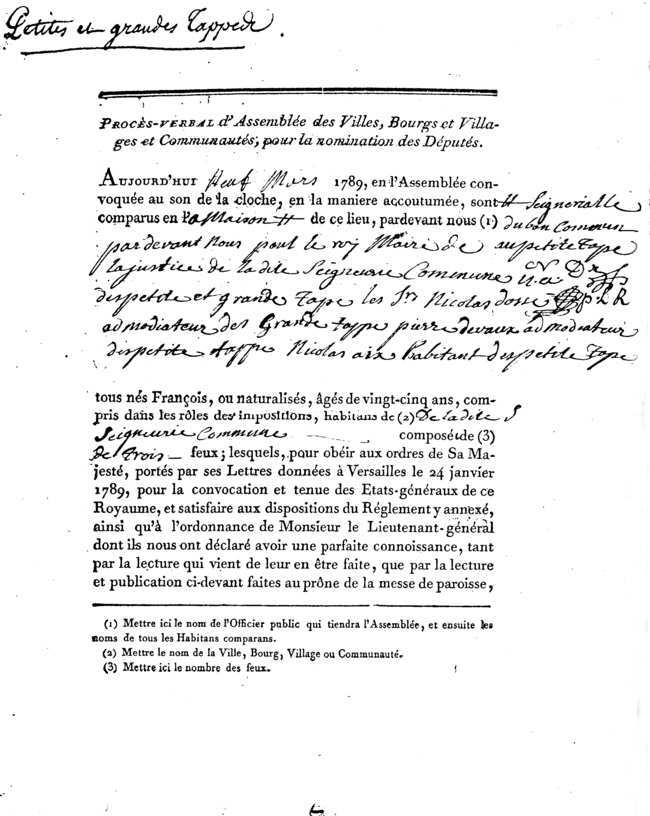 Petites et grandes Tappede.
PROCÈS-VERBAL d'Assemblée des Villes, Bourgs et Villa-
ges et Communautés, pour la nomination des Députés.
AUJOURD'HUI neuf Mars 1789, en l'Assemblée con-
voquée au son de la cloche, en la maniere accoutumée, sont # Seignerialle
comparus en la Maison # de ce lieu, pardevant nous (1) du bon Commun
pardevant nous le Maire de petite tape
la justice de la dite Seigneurie Commune
despetite et grande Tape les Srs Nicolas dosse
admodiateur des Grande tappe pierre devaux admodiateur
despetite tappe Nicolas aix habitant despetite Tape
tous nés François, ou naturalisés, âgés de vingt-cinq ans, com-
pris dans les rôles des impositions, habitans de (2) De la dite
Seigneurie Commune composé de (3)
De trois feux; lesquels, pour obéir aux ordres de Sa Ma-
jesté, portés par ses Lettres données à Versailles le 24 janvier
1789, pour la convocation et tenue des Etats-généraux de ce
Royaume, et satisfaire aux dispositions du Réglement y annexé,
ainsi qu'à l'ordonnance de Monsieur le Lieutenant-général
dont ils nous ont déclaré avoir une parfaite connoissance, tant
par la lecture qui vient de leur en être faite, que par la lecture
et publication ci-devant faites au prône de la messe de paroisse,
(1) Mettre ici le nom de l'Officier public qui tiendra l'Assemblée, et ensuite les
noms de tous les Habitans comparans.
(2) Mettre le nom de la Ville, Bourg, Village ou Communauté.
(3) Mettre ici le nombre des feux.